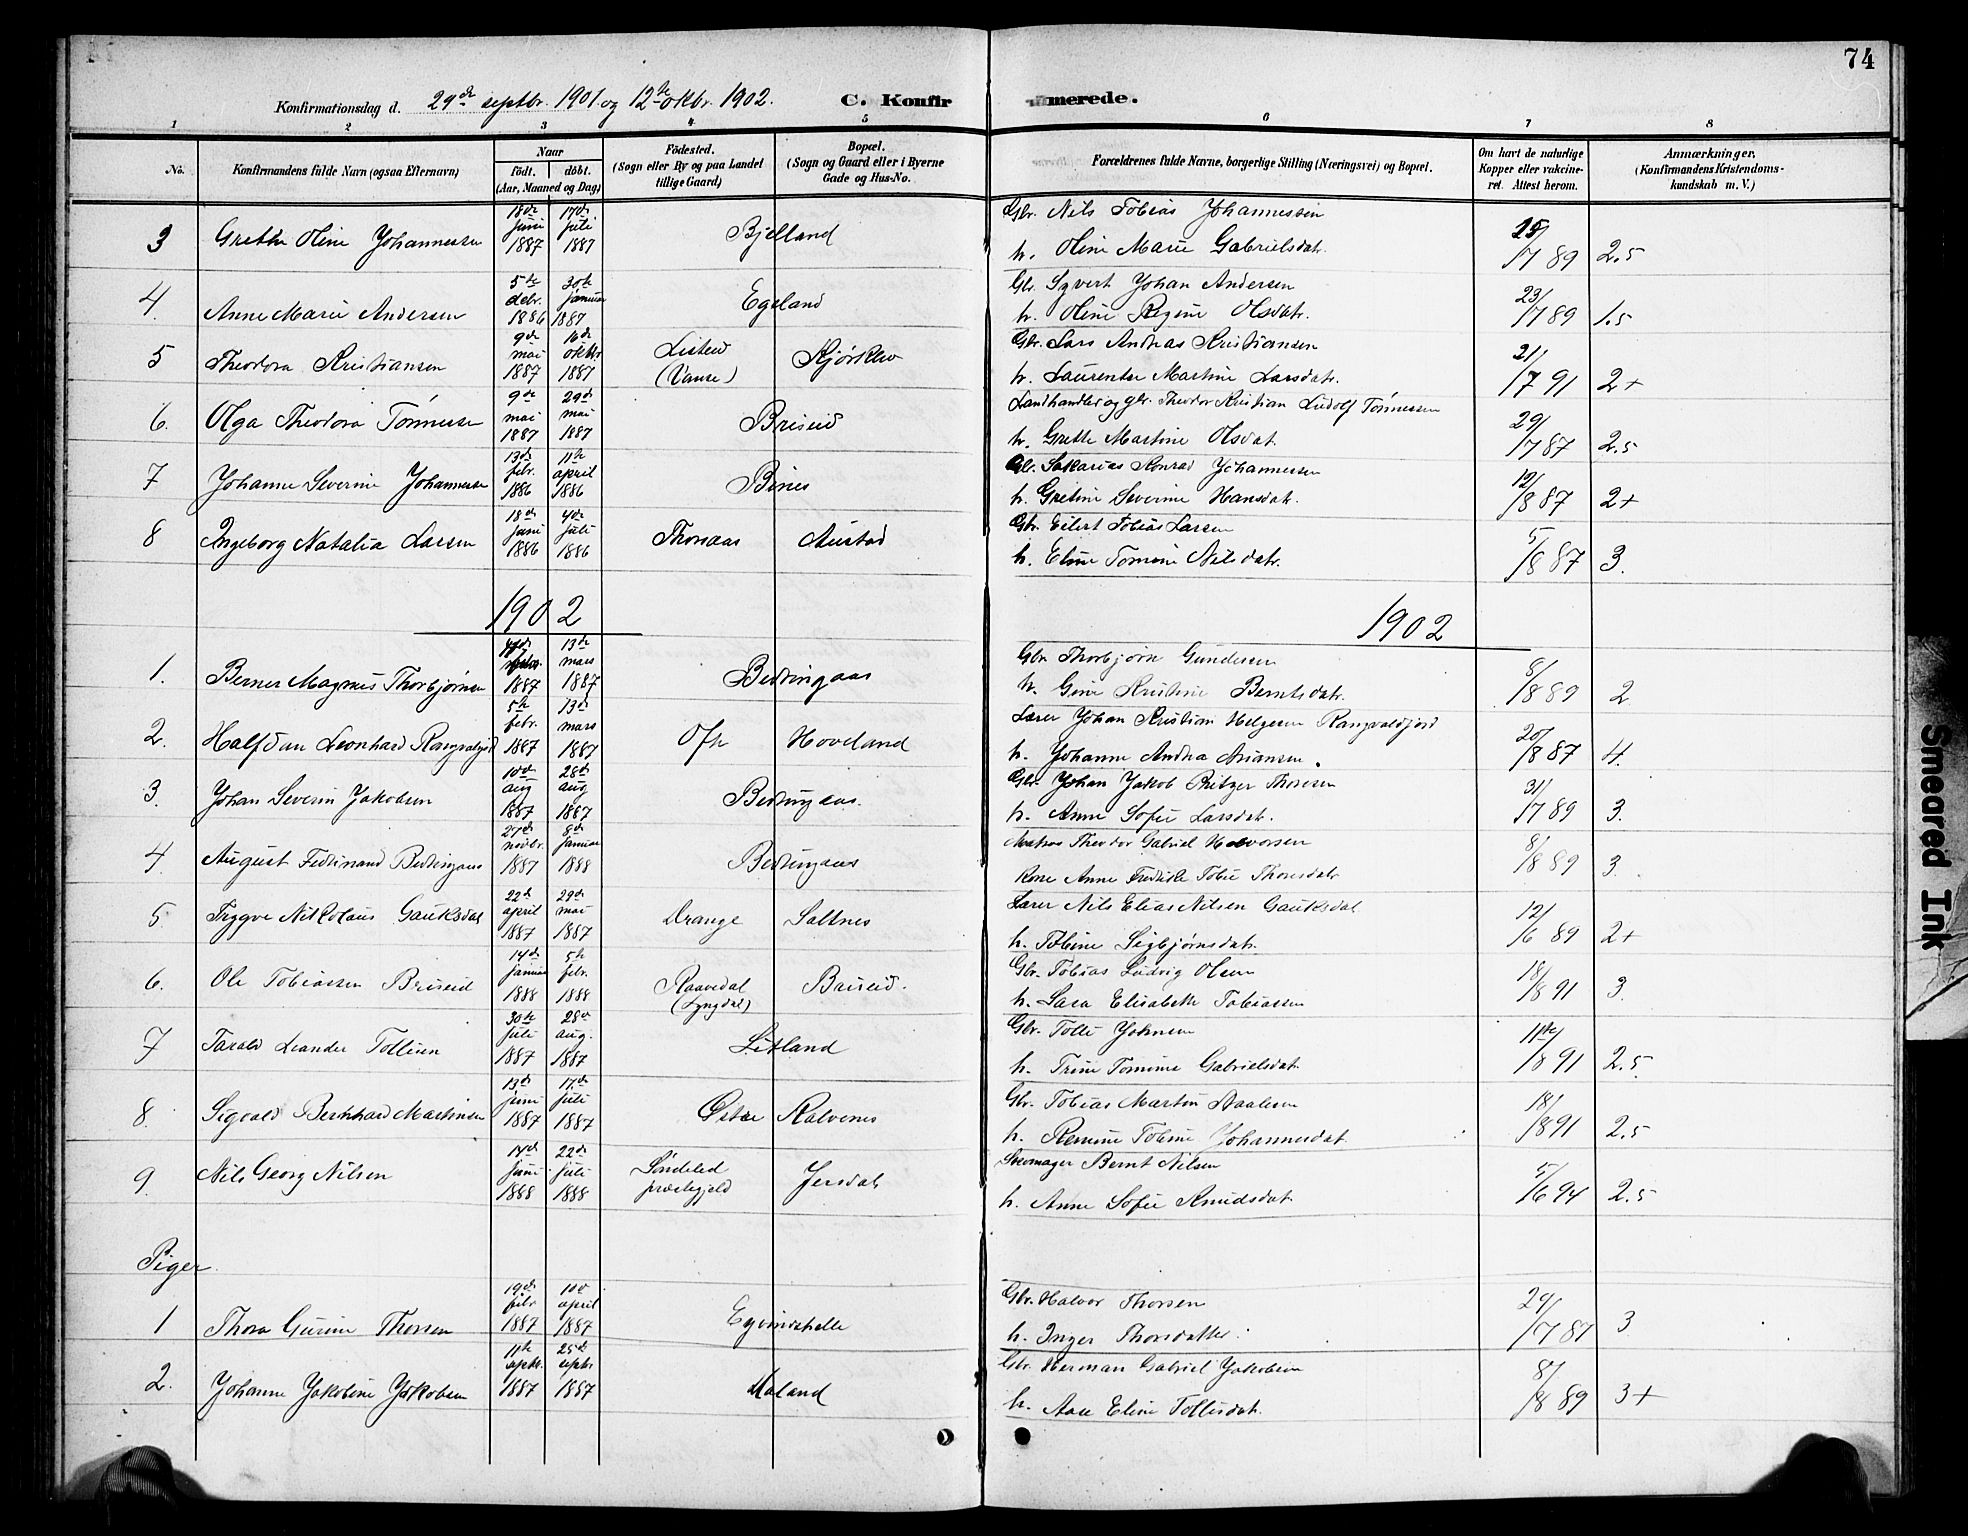 74
Konfirmationsdag d. 29de septbr. 1901 og 12te oktbr. 1902. C. Konfirmerede.
1 2 3 4 5 6 7 8
No. Konfirmandens fulde Navn (ogsaa Efternavn) Naar født. døbt. (Aar, Maaned og Dag) Fødested. (Sogn eller By og paa Landet tillige Gaard) Bopæl. (Sogn og Gaard eller i Byerne Gade og Hus-No. Forældrenes fulde Navne, borgerlige Stilling (Næringsvei) og Bopæl. Om havt de naturlige Kopper eller vakcineret. Attest herom. Anmærkninger, (Konfirmandens Kristendomskundskab m. V.)
3 Grethe Oline Johannessen 18de juni 1887 17de juli 1887 Bjelland Gbr. Nils Tobias Johannessen
h. Oline Marie Gabrielsdat. 25/7 89 2.5
4. Anne Marie Andersen 5te debr. 1886 30te januar 1887 Egeland Gbr. Syvert Johan Andersen
h. Oline Regine Olsdatr. 23/7 89 1.5
5 Theodora Kristiansen 9de mai 1887 16de oktbr 1887 Listeid (Vanse) Kjørkleiv Gbr. Lars Andreas Kristiansen
h. Laurentse Martine Larsdatr. 21/7 91 2+
6. Olga Theodora Tønnessen 9de mai 1887 29de mai 1887 Briseid Landhandler og gbr. Theodor Kristian Ludolf Tønnessen
h. Grethe Martine Olsdat. 29/7 87 2.5
7 Johanne Severine Johannessen 13de febr. 1886 11te april 1886 Bines Gbr. Sakarias Konrad Johannessen
h. Gretine Severine Hansdat. 12/8 87 2+
8 Ingeborg Natalia Larsen 18de juni 1886 4de juli 1886 Thorsaas Austad Gbr. Eilert Tobias Larsen
h. Eline Tomine Nilsdatr. 5/8 87 3.
1902 1902
1. Berner Magnus Thorbjørnsen 1887 13de mars 1887 Bedringaas Gbr. Thorbjørn Gundersen
h. Gine Kristine Berntsdatr. 8/8 89 2
2. Halfdan Leonhard Rangvaldjord 5te febr. 1887 13de mars 1887 Ofte Hoveland Lærer Johan Kristian Helgesen Rangvaldjord
h. Johanne Andrea Ariansen. 20/8 87 4.
3. Johan Severin Jakobsen 10de aug 1887 28de aug 1887 Bedringaas. Gbr. Johan Jakob Reitzer Thorsen
h. Anne Sofie Larsdat. 31/7 89 3.
4 August Ferdinand Bedringaas 27de novbr. 1887 8de januar 1888 Bedringaas Matros Theodor Gabriel Halvorsen
Kone Anne Fredrikke Tobie Thorsdatr 8/8 89 3.
5 Trygve Nikolaus Gauksdal 22de april 1887 29de mai 1887 Drange Saltnes Lærer Nils Elias Nilsen Gauksdal
h. Tobine Sigbjørnsdatr. 12/6 89 2+
6. Ole Tobiassen Briseid 14de januar 1888 5te febr. 1888 Raavedal (Lyngdal) Briseid. Gbr. Tobias Ludvig Olsen
h. Sara Elisabeth Tobiassen 18/8 91 3.
7 Tarald Leander Tollisen 30te juli 1887 28de aug. 1887 Litland Gbr. Tolli Johnsen
h. Trine Tomine Gabrielsdat. 11te/8 91 2.5
8. Sigvald Bernhard Martinsen 13de juni 1887 17de juli 1887 Østre Kalvenes Gbr. Tobias Martin Aadesen
h. Remine Tobine Johannesdat. 18/8 91 2.5
9. Nils Georg Nilsen 14de juni 1888 22de juli 1888 Søndeled præstegjeld Jersdal Skomager Bernt Nilsen
h. Anne Sofie Knudsdat. 5/6 94 2.5
Piger
1 Thora Gurine Thorsen 19de febr 1887 10de april 1887 Eyvindshelle Gbr. Halvor Thorsen
h. Inger Thorsdatter. 29/7 87 3
2. Johanne Jakobine Jakobsen 11te septr. 1887 25de septr 1887 Maland Gbr. Herman Gabriel Jakobsen
h. Aase Eline Tollisdat. 8/8 89 3+
Smeared Ink